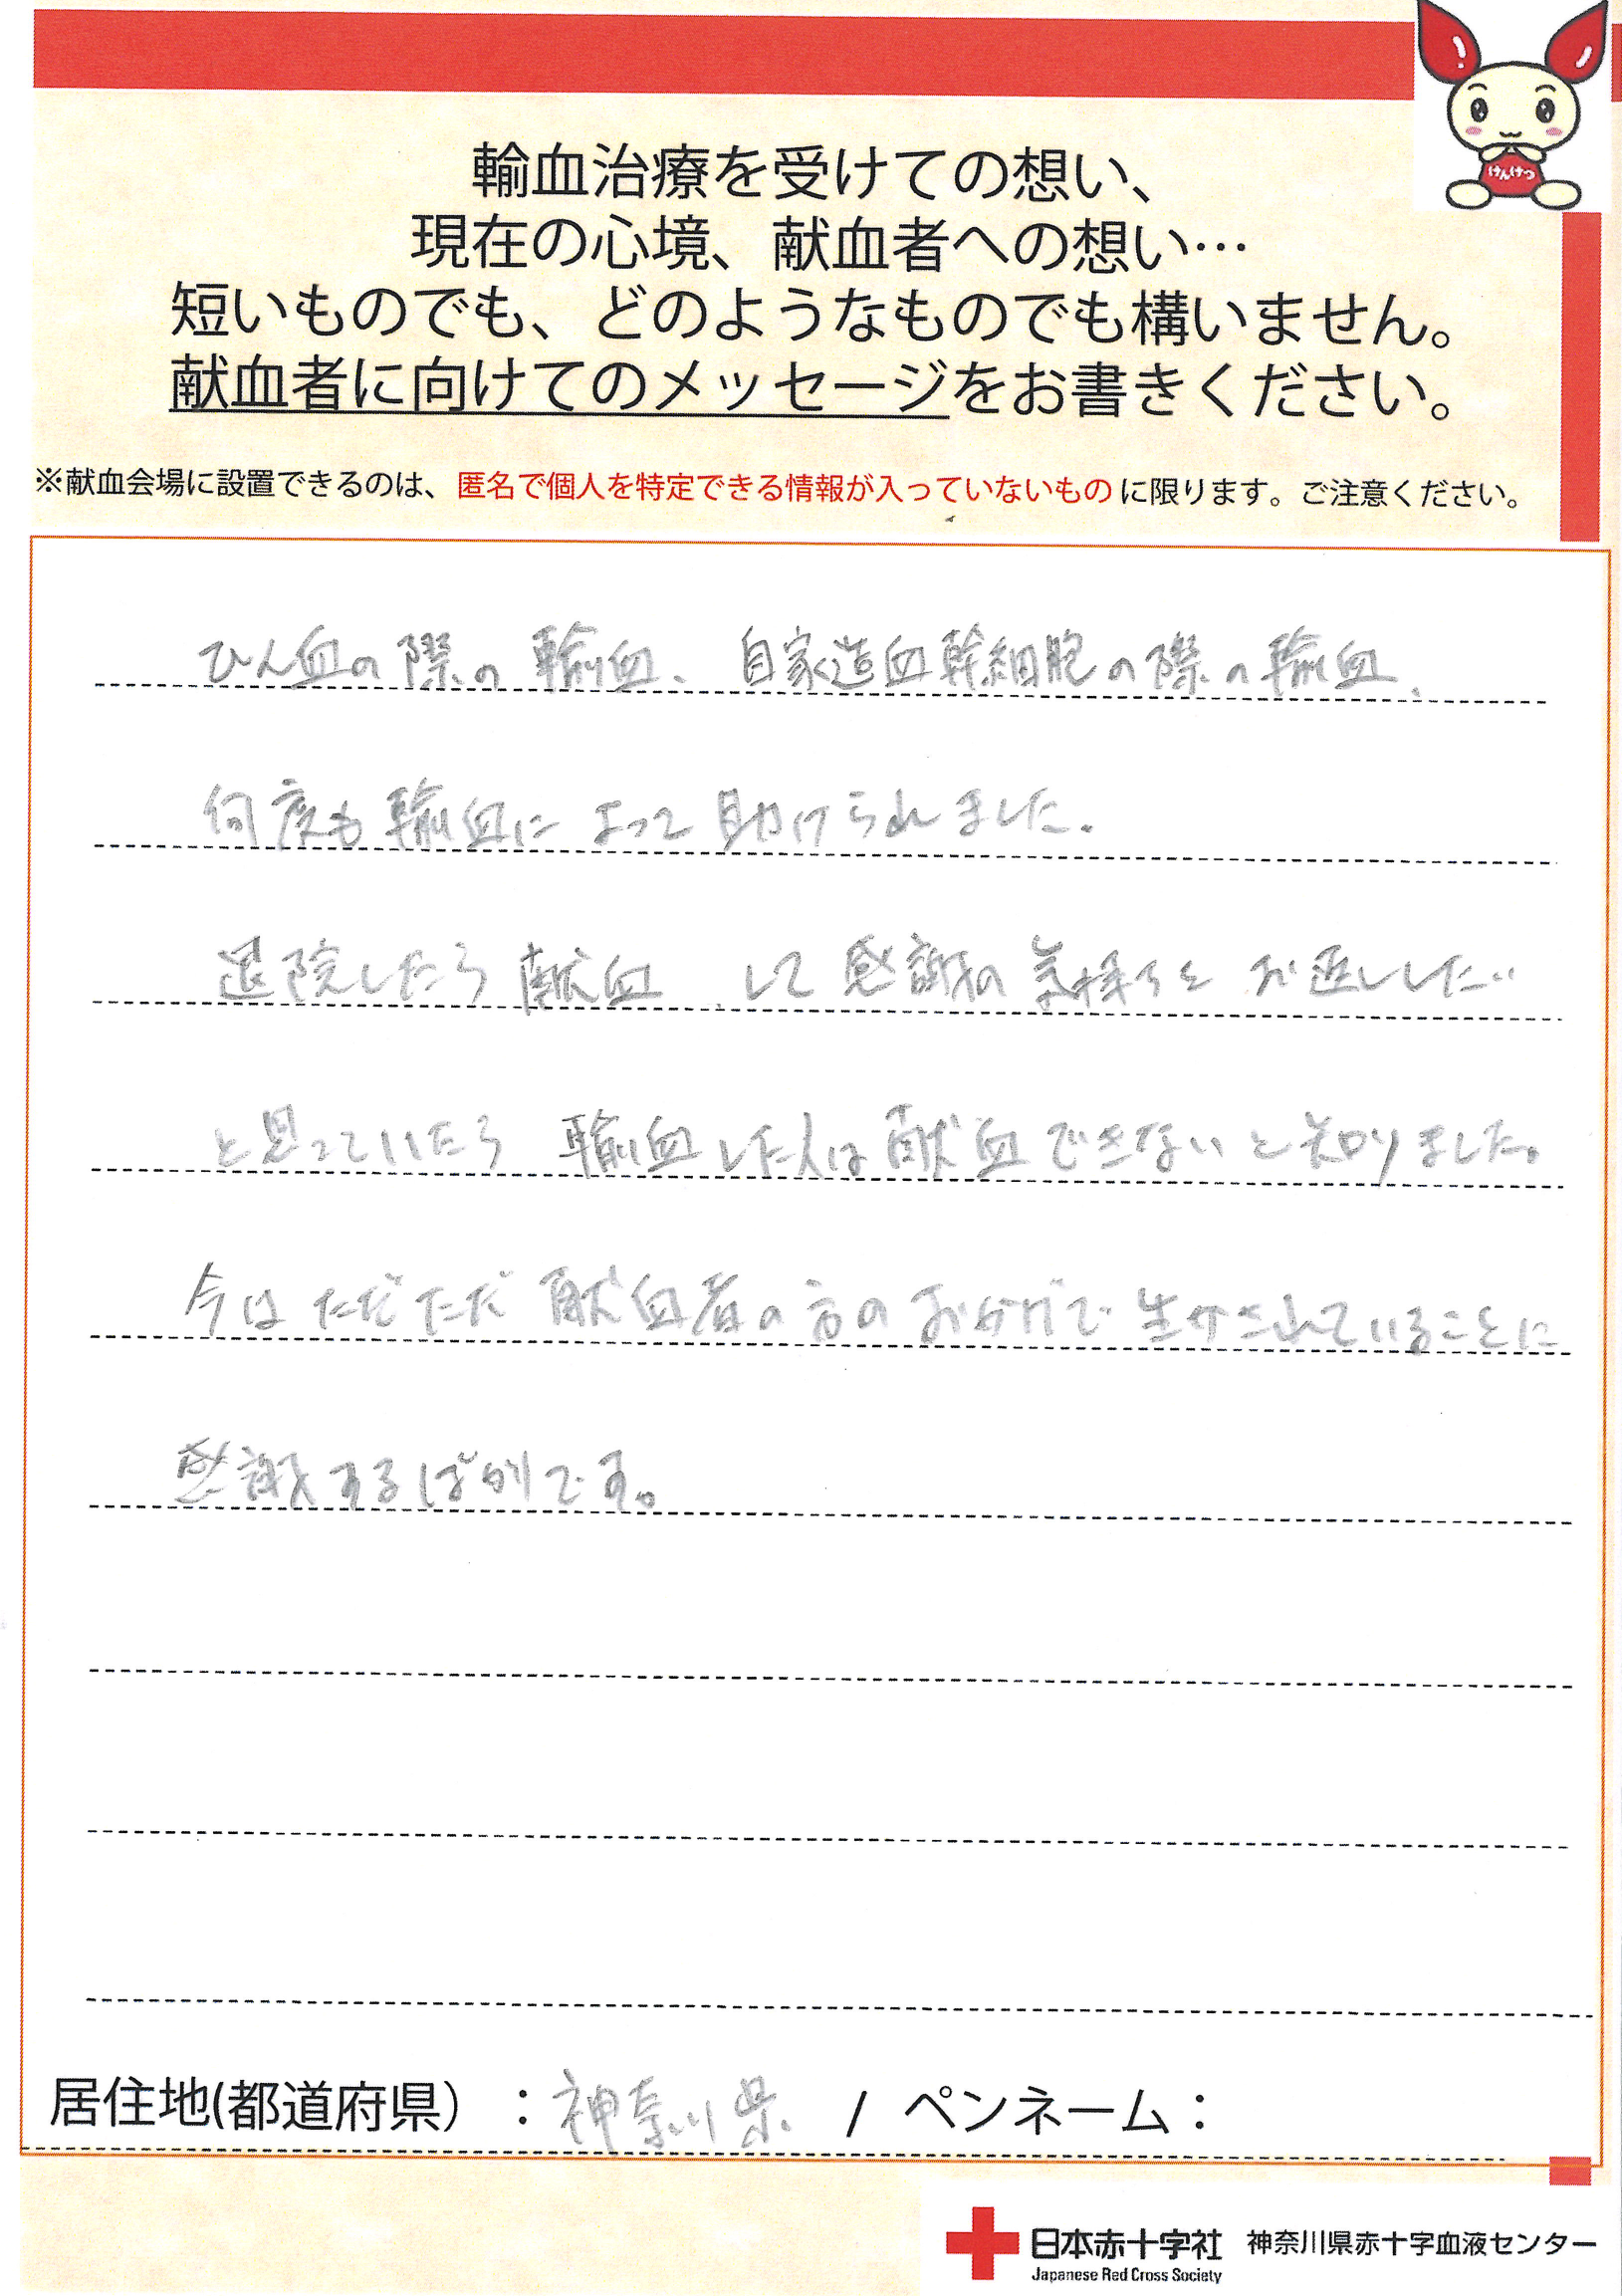 けんけつ
輸血治療を受けての想い、
現在の心境、献血者への想い…
短いものでも、どのようなものでも構いません。
献血者に向けてのメッセージをお書きください。
※献血会場に設置できるのは、匿名で個人を特定できる情報が入っていないものに限ります。ご注意ください。
ひん血の際の輸血、自家造血幹細胞の際の輸血、
何度も輸血によって助けられました。
退院したら献血して感謝の気持ちをお返ししたい
と思っていたら輸血した人は献血できないと知りました。
今はただただ献血者の方のおかげで生かされていることに
感謝するばかりです。
居住地(都道府県）：神奈川県 / ペンネーム：
日本赤十字社 神奈川県赤十字血液センター
Japanese Red Cross Society